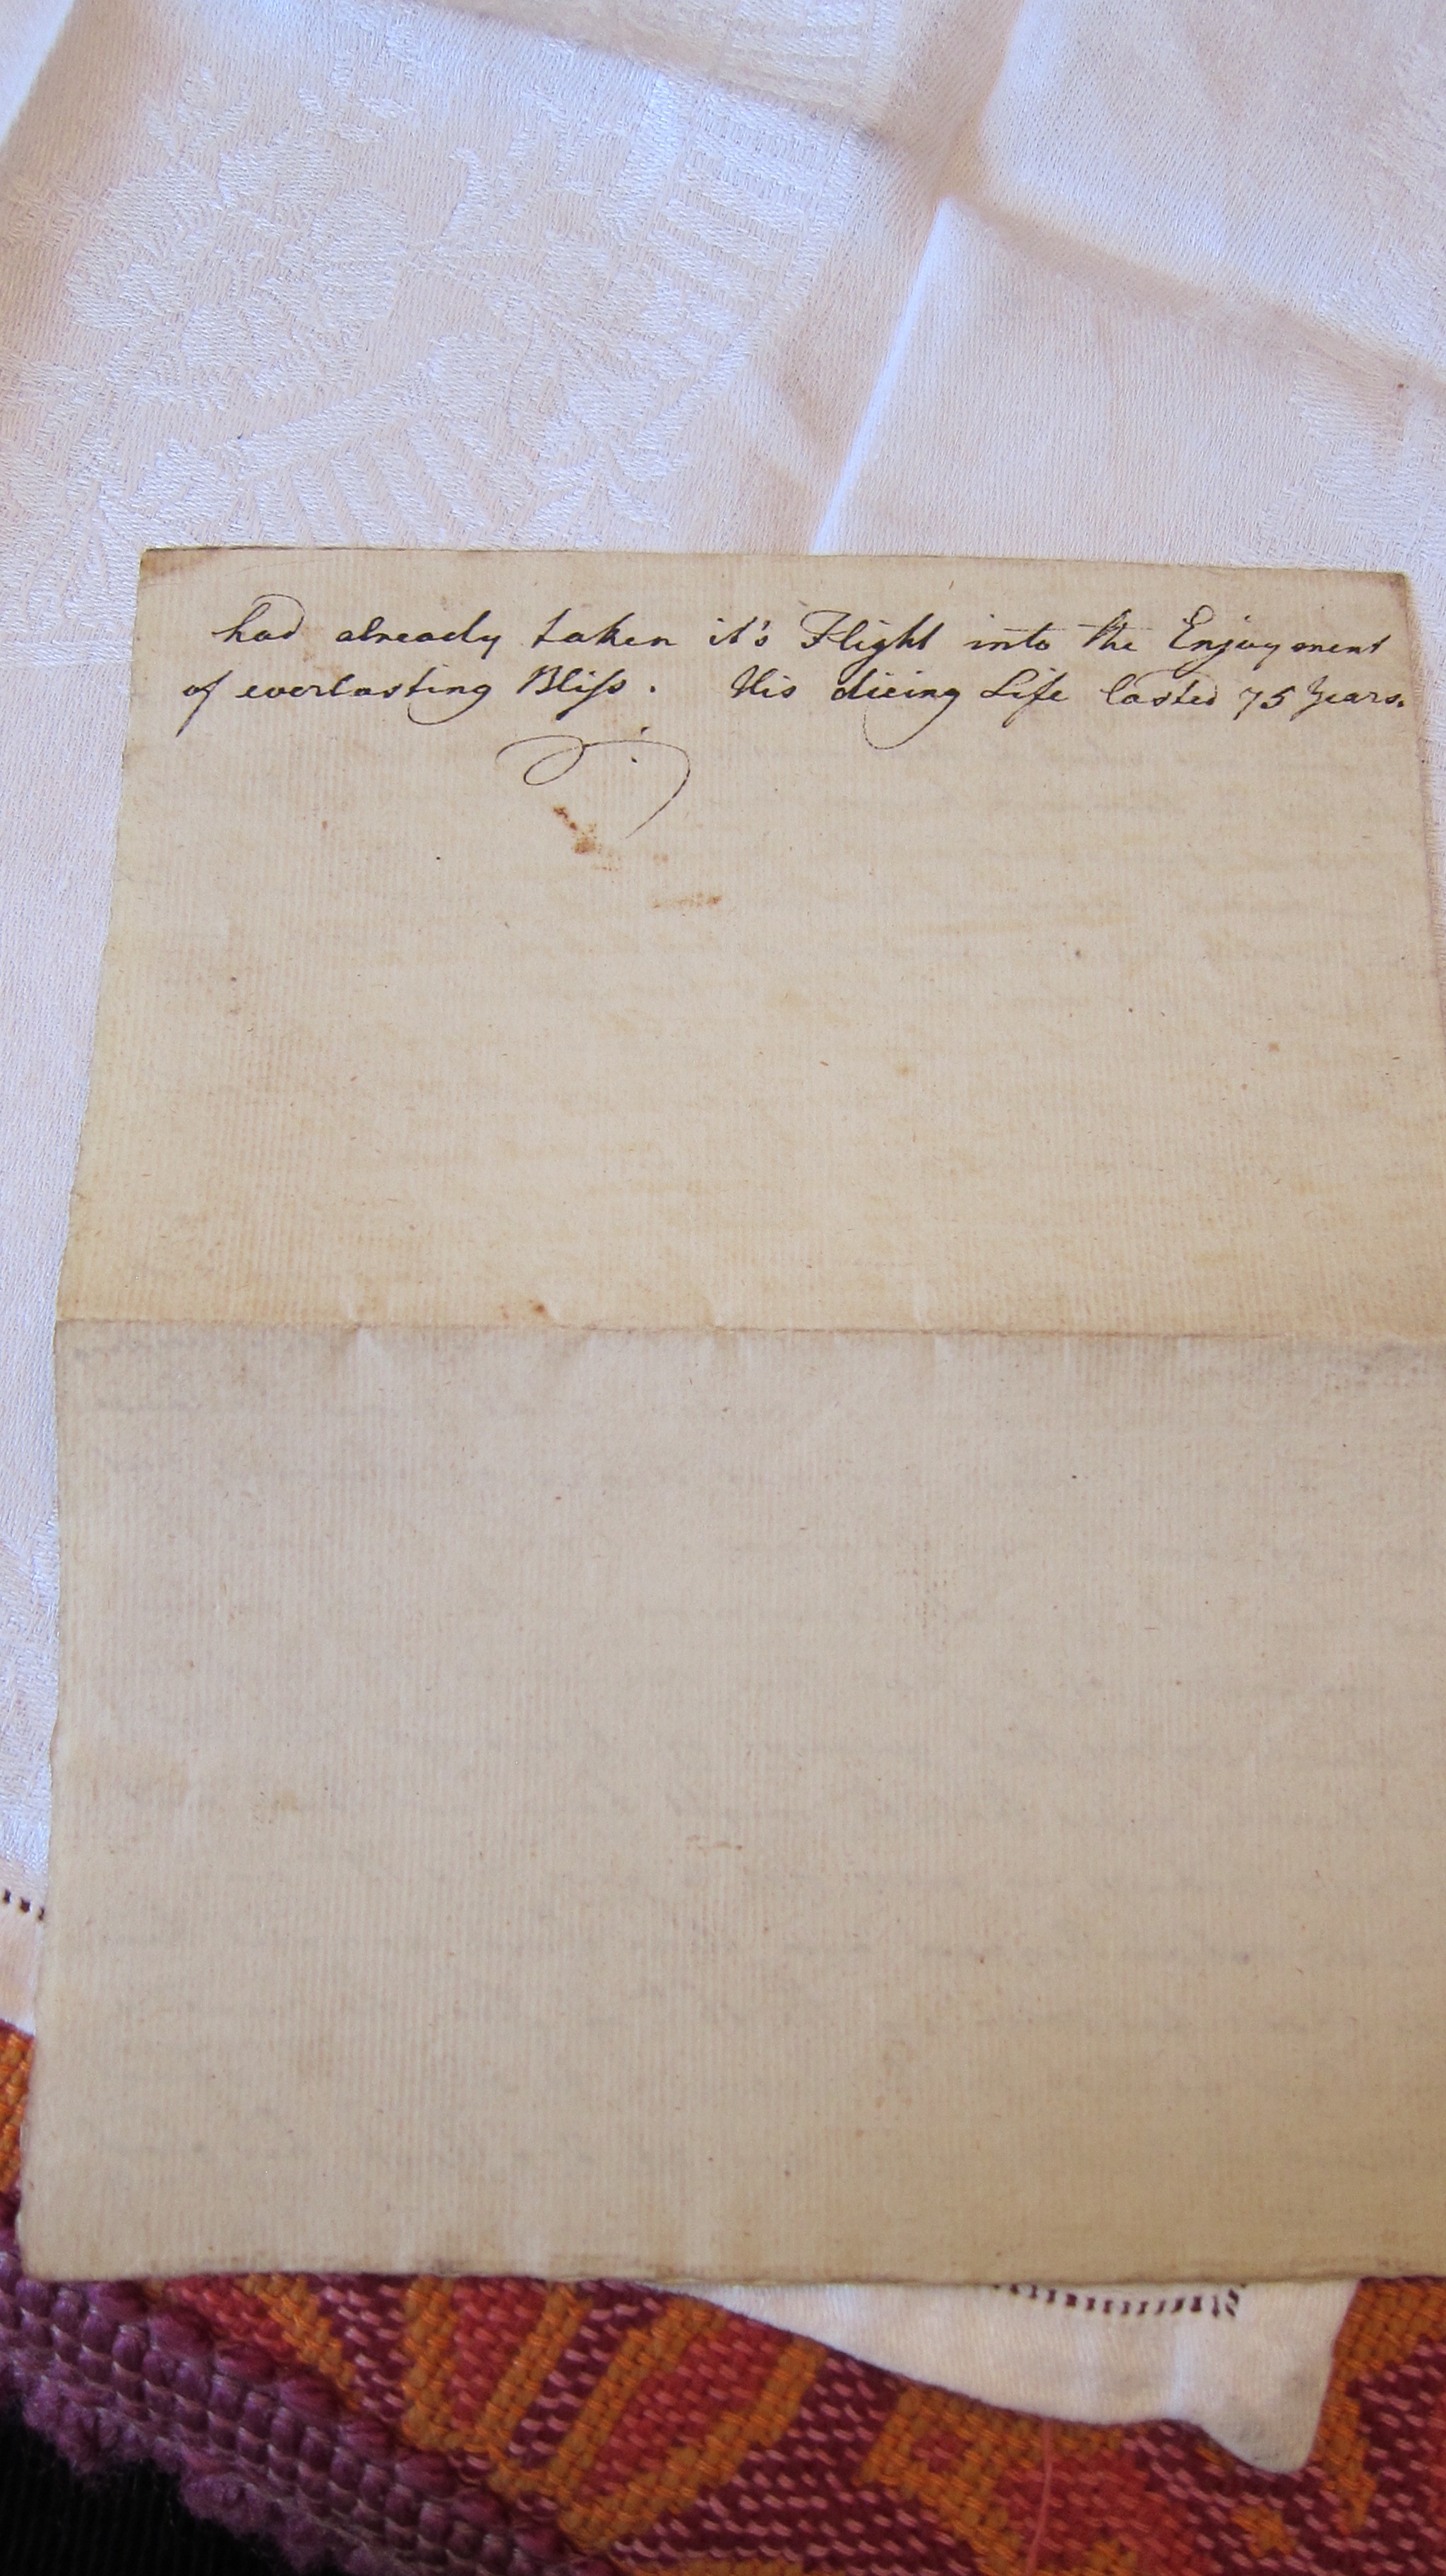 had already taken it's Flight into the Enjoyment
of everlasting Bliſs. His dieing Life lasted 75 Years.